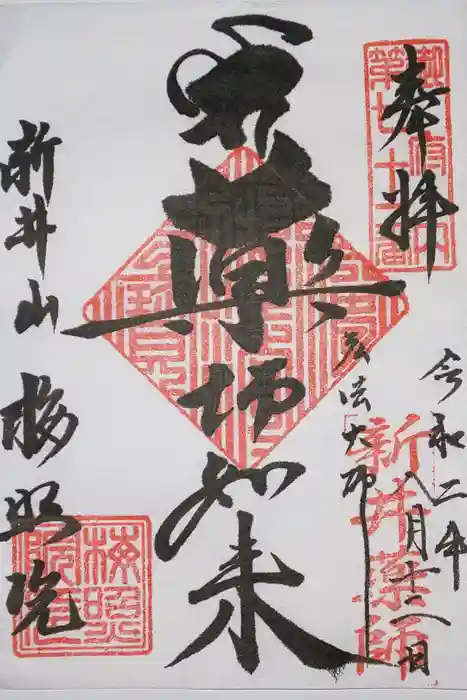 奉拝
御府内
第七十一番
令和二年
八月十二日
新井薬師
弘法大師
薬師如来
新井山
梅照院